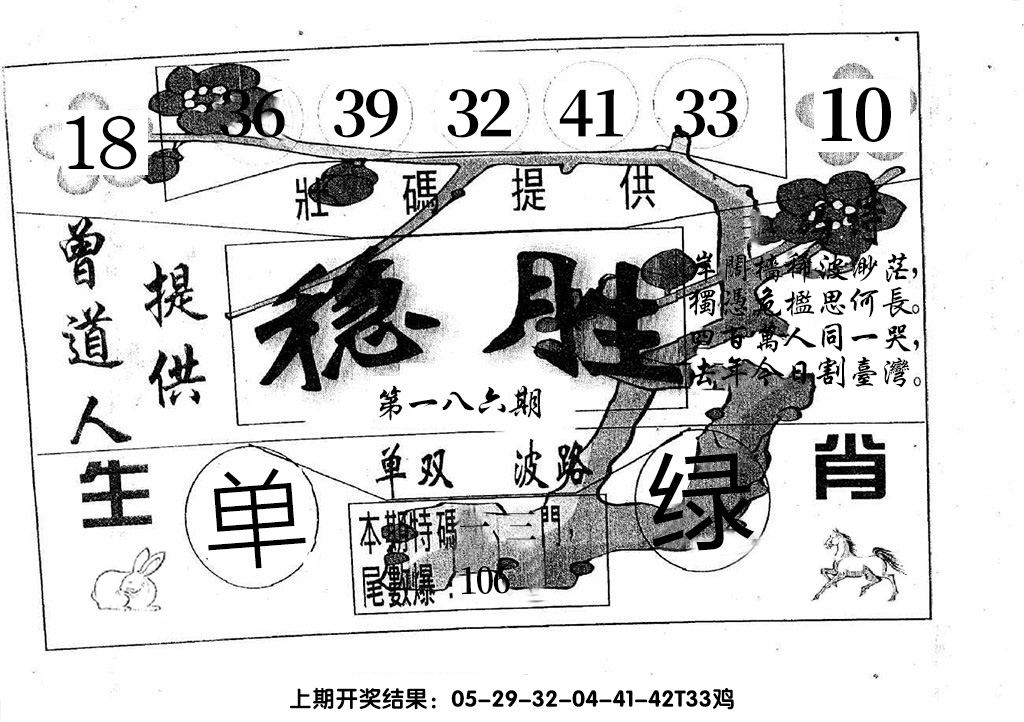 18 36 39 32 41 33 10
壯碼提供
曾道人
提供
特
稳胜
第一八六期
岸闊檣稀波渺茫，
獨憑危檻思何長。
四百萬人同一哭，
去年今日割臺灣。
单双 波路
生肖
单
绿
本期特碼一、三門，
尾數爆：106
上期开奖结果：05-29-32-04-41-42T33鸡